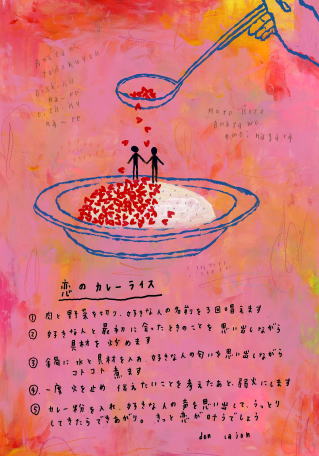 恋のカレーライス
① 肉と野菜を切り、好きな人の名前を3回唱えます
② 好きな人と最初に会ったときのことを思い出しながら
具材を炒めます
③ 鍋に水と具材を入れ、好きな人の匂いを思い出しながら
コトコト煮ます
④ 一度火を止め 伝えたいことを考えたあと、弱火にします
⑤ カレー粉を入れ、好きな人の声を思い出して、うっとり
してきたらできあがり。きっと恋が叶うでしょう